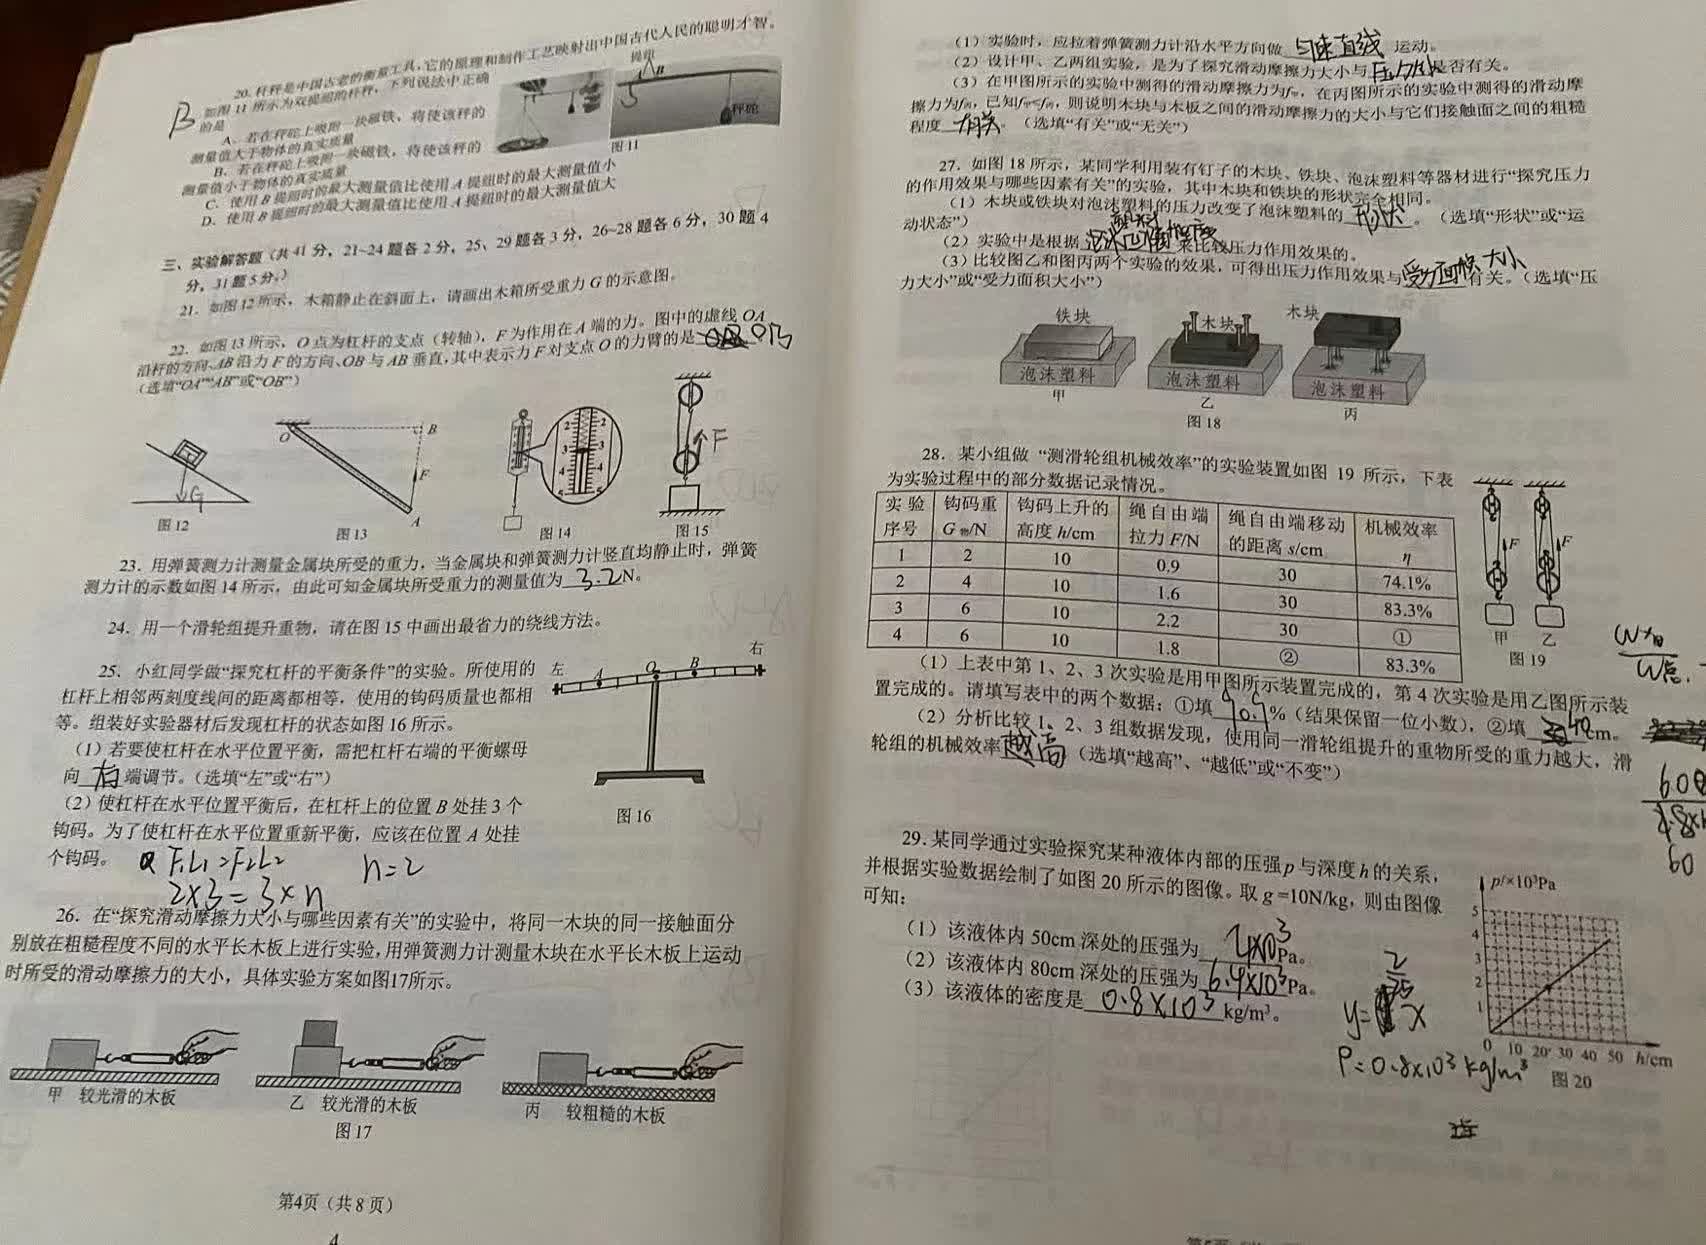 20. 杆秤是中国古老的衡量工具,它的原理和制作工艺映射出中国古代人民的聪明才智。
如图11所示为双提纽的杆秤,下列说法中正确
的是
B
A. 若在秤砣上吸附一块磁铁,将使该秤的
测量值大于物体的真实质量
B. 若在秤砣上吸附一块磁铁,将使该秤的
测量值小于物体的真实质量
C. 使用B提纽时的最大测量值比使用A提纽时的最大测量值小
D. 使用B提纽时的最大测量值比使用A提纽时的最大测量值大
提纽
A B
秤砣
图11
三、实验解答题(共41分,21~24题各2分,25、29题各3分,26~28题各6分,30题4
分,31题5分。)
21. 如图12所示,木箱静止在斜面上,请画出木箱所受重力G的示意图。
22. 如图13所示,O点为杠杆的支点(转轴),F为作用在A端的力。图中的虚线OA
沿杆的方向、AB沿力F的方向、OB与AB垂直,其中表示力F对支点O的力臂的是 OB
(选填“OA”“AB”或“OB”)
G
图12
O B F A
图13
2 2
3 3
4 4
5 5
图14
F
图15
23. 用弹簧测力计测量金属块所受的重力,当金属块和弹簧测力计竖直均静止时,弹簧
测力计的示数如图14所示,由此可知金属块所受重力的测量值为 3.2 N。
24. 用一个滑轮组提升重物,请在图15中画出最省力的绕线方法。
25. 小红同学做“探究杠杆的平衡条件”的实验。所使用的
杠杆上相邻两刻度线间的距离都相等,使用的钩码质量也都相
等。组装好实验器材后发现杠杆的状态如图16所示。
(1)若要使杠杆在水平位置平衡,需把杠杆右端的平衡螺母
向 右 端调节。(选填“左”或“右”)
(2)使杠杆在水平位置平衡后,在杠杆上的位置B处挂3个
钩码。为了使杠杆在水平位置重新平衡,应该在位置A处挂
个钩码。
F₁L₁=F₂L₂ n=2
2×3=3×n
左 A O B 右
图16
26. 在“探究滑动摩擦力大小与哪些因素有关”的实验中,将同一木块的同一接触面分
别放在粗糙程度不同的水平长木板上进行实验,用弹簧测力计测量木块在水平长木板上运动
时所受的滑动摩擦力的大小,具体实验方案如图17所示。
甲 较光滑的木板
乙 较光滑的木板
丙 较粗糙的木板
图17
第4页(共8页)
4
(1)实验时,应拉着弹簧测力计沿水平方向做 匀速直线 运动。
(2)设计甲、乙两组实验,是为了探究滑动摩擦力大小与 压力大小 是否有关。
(3)在甲图所示的实验中测得的滑动摩擦力为f甲,在丙图所示的实验中测得的滑动摩
擦力为f丙,已知f甲<f丙,则说明木块与木板之间的滑动摩擦力的大小与它们接触面之间的粗糙
程度 有关 。(选填“有关”或“无关”)
27. 如图18所示,某同学利用装有钉子的木块、铁块、泡沫塑料等器材进行“探究压力
的作用效果与哪些因素有关”的实验,其中木块和铁块的形状完全相同。
(1)木块或铁块对泡沫塑料的压力改变了泡沫塑料的 形状 。(选填“形状”或“运
动状态”)
(2)实验中是根据 来比较压力作用效果的。
(3)比较图乙和图丙两个实验的效果,可得出压力作用效果与 受力面积大小 有关。(选填“压
力大小”或“受力面积大小”)
铁块
泡沫塑料
甲
木块
泡沫塑料
乙
木块
泡沫塑料
丙
图18
28. 某小组做“测滑轮组机械效率”的实验装置如图19所示,下表
为实验过程中的部分数据记录情况。
实验序号 钩码重G物/N 钩码上升的高度h/cm 绳自由端拉力F/N 绳自由端移动的距离s/cm 机械效率η
1 2 10 0.9 30 74.1%
2 4 10 1.6 30 83.3%
3 6 10 2.2 30 ①
4 6 10 1.8 ② 83.3%
F F
甲 乙
图19
(1)上表中第1、2、3次实验是用甲图所示装置完成的,第4次实验是用乙图所示装
置完成的。请填写表中的两个数据:①填 90.9 %(结果保留一位小数),②填 40 cm。
(2)分析比较1、2、3组数据发现,使用同一滑轮组提升的重物所受的重力越大,滑
轮组的机械效率 越高 (选填“越高”、“越低”或“不变”)
W有
W总
60
29. 某同学通过实验探究某种液体内部的压强p与深度h的关系,
并根据实验数据绘制了如图20所示的图像。取g=10N/kg,则由图像
可知:
(1)该液体内50cm深处的压强为 4×10³ Pa。
(2)该液体内80cm深处的压强为 6.4×10³ Pa。
(3)该液体的密度是 0.8×10³ kg/m³。
y=2/25x
ρ=0.8×10³kg/m³
p/×10³Pa
5
4
3
2
1
0 10 20 30 40 50 h/cm
图20